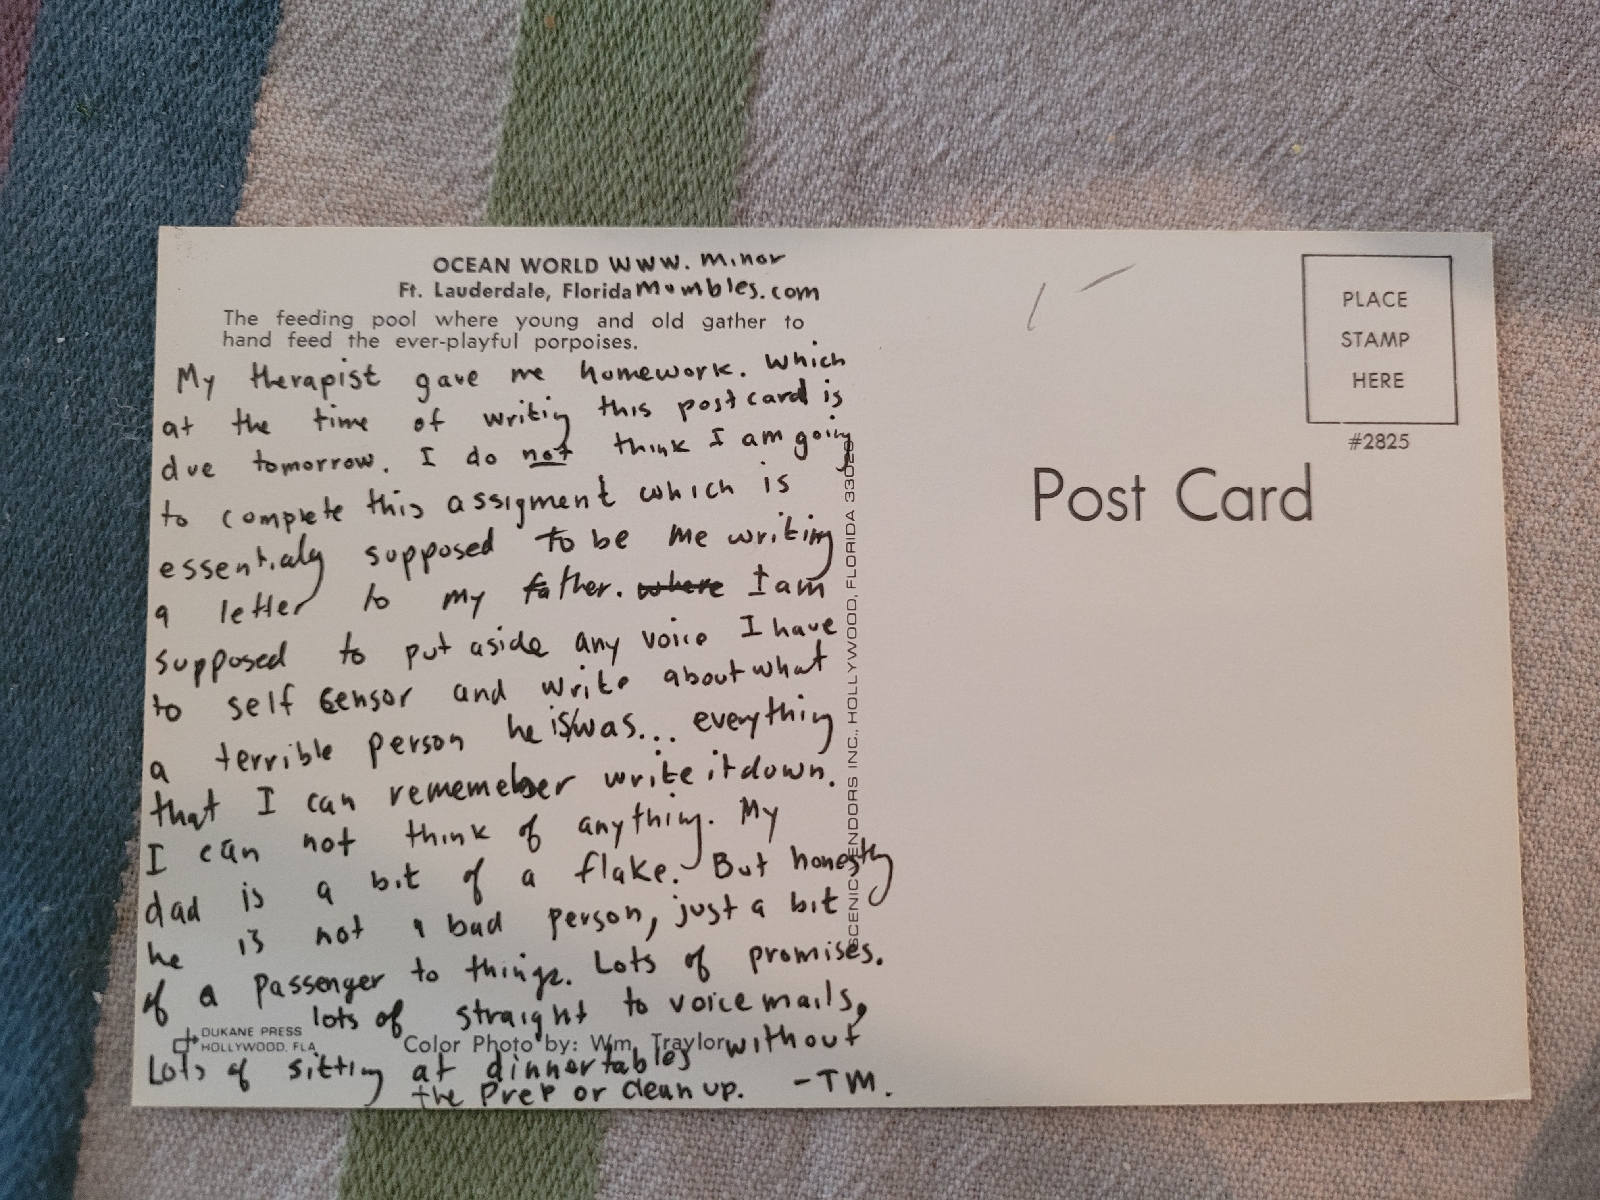 OCEAN WORLD www.minor
Ft. Lauderdale, Florida mumbles.com
The feeding pool where young and old gather to
hand feed the ever-playful porpoises.
My therapist gave me homework. which
at the time of writing this postcard is
due tomorrow. I do not think I am going
to complete this assigment which is
essentialy supposed to be me writing
a letter to my father. where I am
supposed to put aside any voice I have
to self censor and write about what
a terrible person he is/was... everything
that I can rememeber write it down.
I can not think of anything. My
dad is a bit of a flake. But honestly
he is not a bad person, just a bit
of a passenger to things. Lots of promises.
lots of straight to voicemails,
DUKANE PRESS
HOLLYWOOD, FLA
Color Photo by: Wm. Traylor
Lots of sitting at dinnertables without
the prep or clean up. -TM.
SCENIC VENDORS INC., HOLLYWOOD, FLORIDA 33020
PLACE
STAMP
HERE
#2825
Post Card